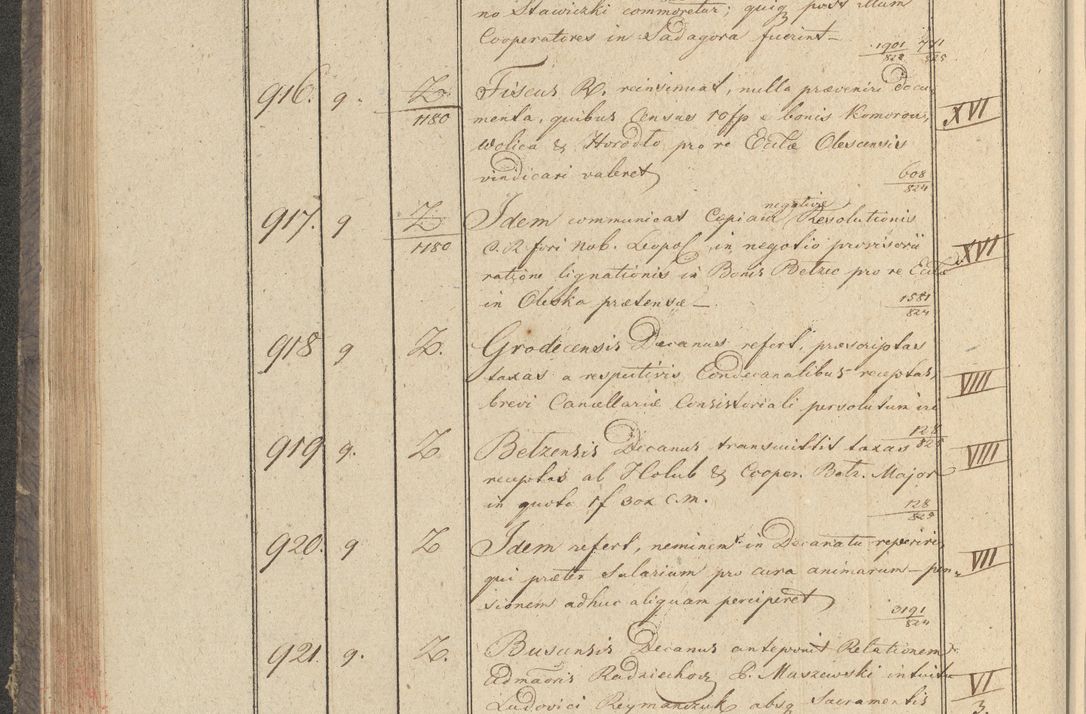 no Stawiczki commoretur; quiq post illum
Cooperatores in Sadagora fuerint
1901 771
824 825
916. 9. Z. 1180 Fiscus R. reinsinuat, nulla præveniri docu-
menta, quibus Census 10fp e bonis Komorow, XVI
wolica & Horodło pro re Eccłæ Olescensis
vindicari valeret
608
824
917. 9 Z. 1180 Idem communicat Copiam negativæ Resolutionis
C. R. fori Nob. Leopol in negotio provisorii XVI
ratione lignationis in Bonis Betzec pro re Eccłæ
in Oleska prætensæ
1581
824
918 9 Z. Grodecensis Decanus refert, præscriptas
taxas a respectivis Condecanalibus receptas, VIII
brevi Cancellariæ Consistoriali persolutum iri
128
824
919 9. Z Betzensis Decanus transmittit taxas VIII
receptas ab Holub & Cooper. Betz. Major
in quota 1f 30x C.M.
128
824
920. 9 Z Idem refert, neminem in Decanatu reperiri,
qui præter Salarium pro cura animarum pen- VII
sionem adhuc aliquam perciperet
3191
824
921. 9. Z. Busensis Decanus anteponit Relationem
Admaoris Radziechow P. Maszewski intuitu VI
Ludovici Reymanczuk absq Sacramentis 3.